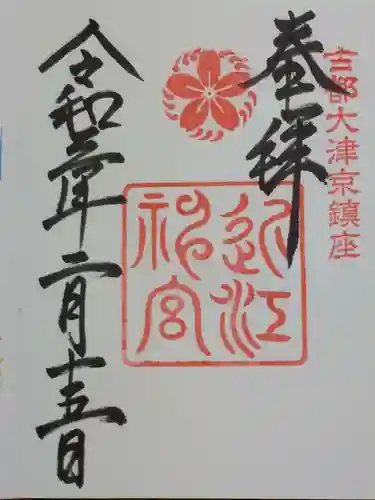 古都大津京鎮座
奉拝
近江神宮
令和二年二月十五日